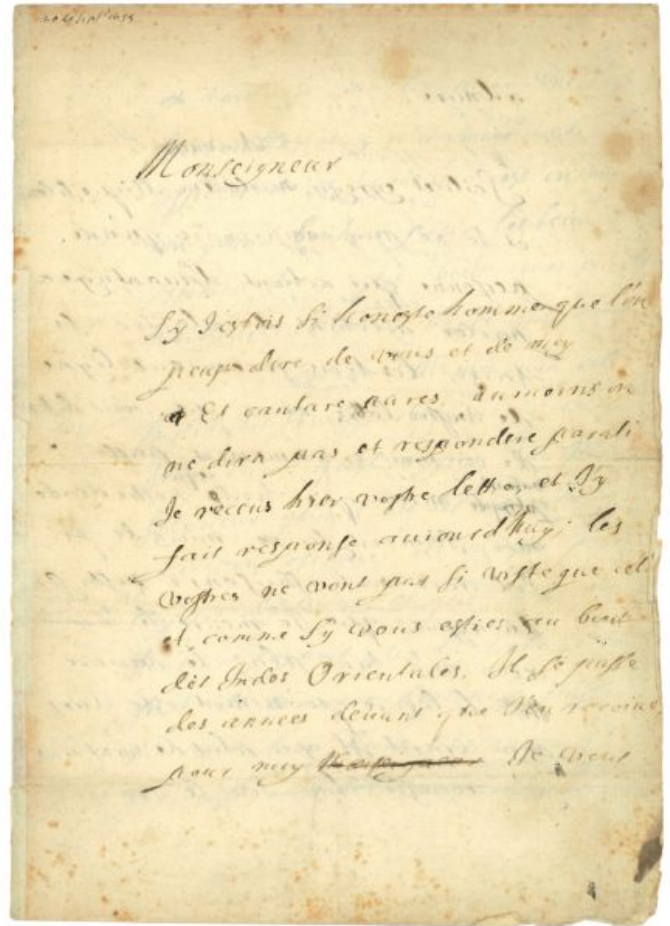 Monseigneur
Sy J'estois si honeste homme que l'on
peut dire de vous et de moy
Et cantare pares au moins on
ne dira pas et respondere parati
Je receus hier vostre lettre et J'y
fait response aujourdhuy; les
vostres ne vont pas si viste que cela
et comme sy vous esties au bout
des Indes Orientales. Il se passe
des années devant que J'en reçoive
pour moy Je veux